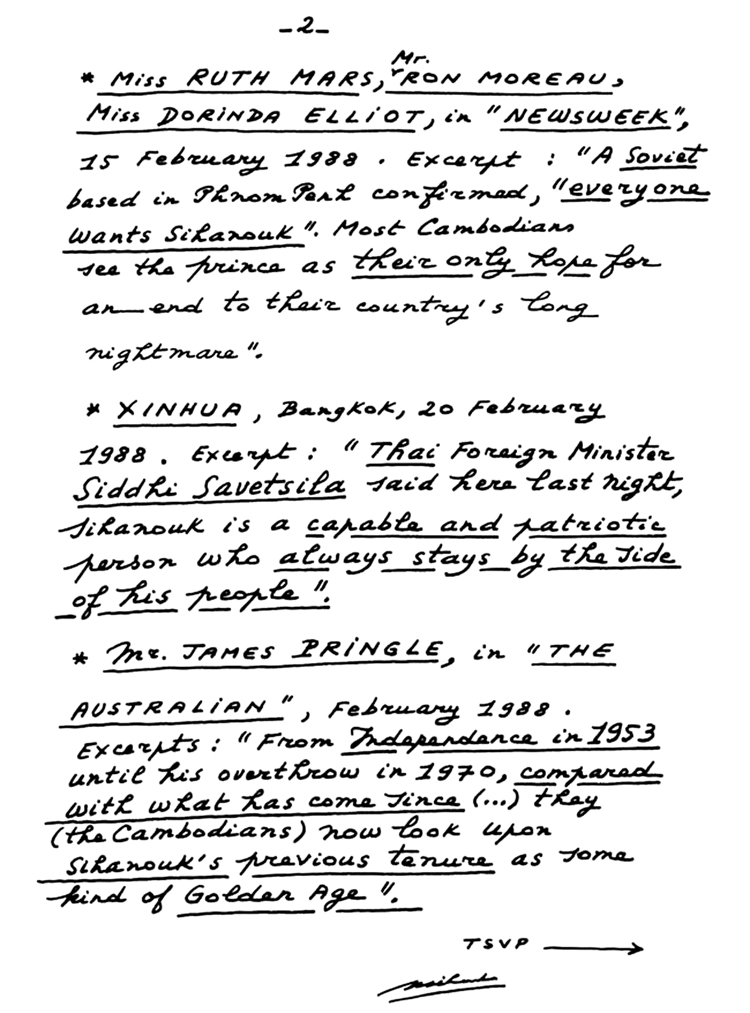 -2-
* Miss RUTH MARS, Mr. RON MOREAU,
Miss DORINDA ELLIOT, in "NEWSWEEK",
15 February 1988. Excerpt : "A Soviet
based in Phnom Penh confirmed, "everyone
wants Sihanouk". Most Cambodians
see the prince as their only hope for
an end to their country's long
nightmare".
* XINHUA, Bangkok, 20 February
1988. Excerpt : "Thai Foreign Minister
Siddhi Savetsila said here last night,
Sihanouk is a capable and patriotic
person who always stays by the side
of his people".
* Mr. JAMES PRINGLE, in "THE
AUSTRALIAN", February 1988.
Excerpts : "From Independence in 1953
until his overthrow in 1970, compared
with what has come since (...) they
(the Cambodians) now look upon
Sihanouk's previous tenure as some
kind of Golden Age".
TSVP →